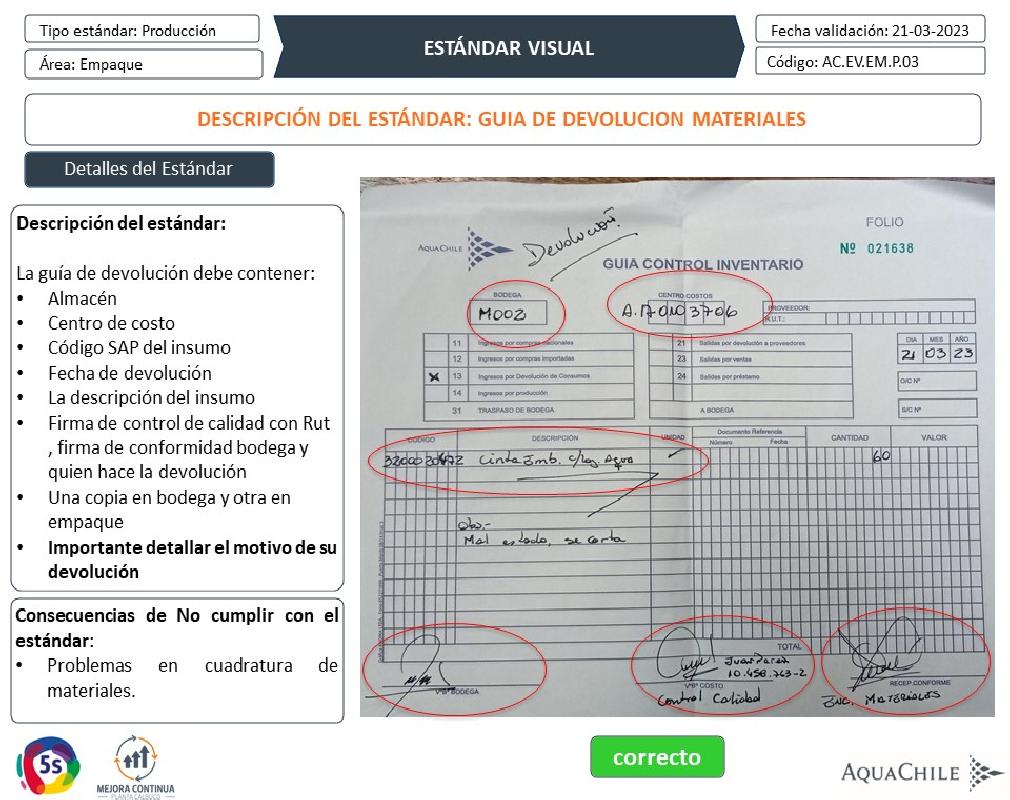 Tipo estándar: Producción
Área: Empaque
ESTÁNDAR VISUAL
Fecha validación: 21-03-2023
Código: AC.EV.EM.P.03
DESCRIPCIÓN DEL ESTÁNDAR: GUIA DE DEVOLUCION MATERIALES
Detalles del Estándar
Descripción del estándar:
La guía de devolución debe contener:
• Almacén
• Centro de costo
• Código SAP del insumo
• Fecha de devolución
• La descripción del insumo
• Firma de control de calidad con Rut
, firma de conformidad bodega y
quien hace la devolución
• Una copia en bodega y otra en
empaque
• Importante detallar el motivo de su
devolución
Consecuencias de No cumplir con el
estándar:
• Problemas en cuadratura de
materiales.
AQUACHILE
Devolución
FOLIO
Nº 021638
GUIA CONTROL INVENTARIO
BODEGA
M002
CENTRO COSTOS
PROVEEDOR:
R.U.T.:
11 Ingresos por compras nacionales
12 Ingresos por compras importadas
13 Ingresos por Devolución de Consumos
14 Ingresos por producción
31 TRASPASO DE BODEGA
21 Salidas por devolución a proveedores
23 Salidas por ventas
24 Salidas por préstamo
A BODEGA
DIA MES AÑO
21 03 23
O/C Nº
S/C Nº
CODIGO DESCRIPCIÓN UNIDAD Documento Referencia CANTIDAD VALOR
Número Fecha
Cinta Emb. c/log. Aqua 60
Obs.-
Mal estado, se corta
TOTAL
VºBº BODEGA
10.458.763-2
VºBº COSTO
Control Calidad
RECEP.CONFORME
ENC. MATERIALES
5s
MEJORA CONTINUA
PLANTA CALBUCO
correcto
AQUACHILE